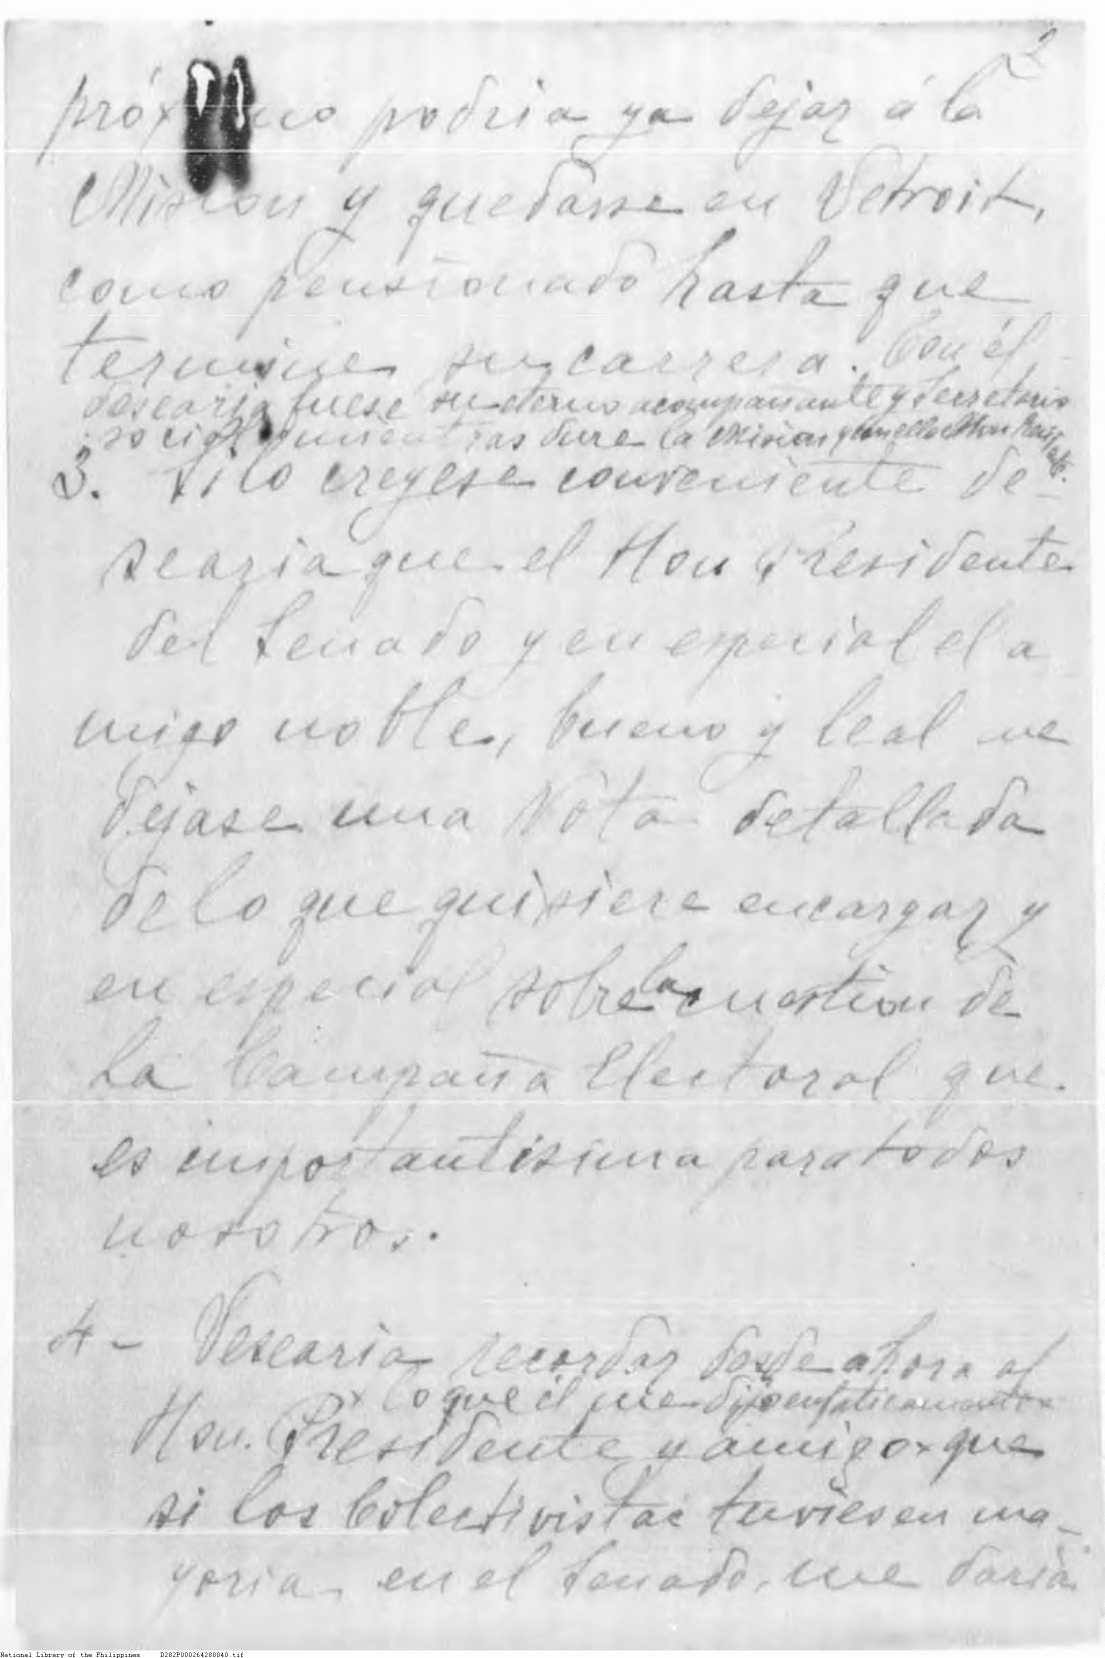 2
próximo podria ya dejar á la
Mision y quedarse en Detroit,
como pensionado hasta que
termine su carrera. Con él
desearia fuese su eterno acompañante y Secretario
social mientras dure la Mision y con ello Hon
3. Si lo creyese conveniente de-
searia que el Hon Presidente
del Senado y en especial el a
migo noble, bueno y leal me
dejase una Nota detallada
de lo que quisiere encargar y
en especial sobre la cuestion de
La Campaña Electoral que
es importantisima para todos
nosotros.
4- Desearia recordar desde ahora al
x lo que él me dijo enfaticamente x
Hon. Presidente y amigo x que
si los Colectivistas tuviesen ma-
yoria en el Senado, me daria
National Library of the Philippines D282P000264280040.tif